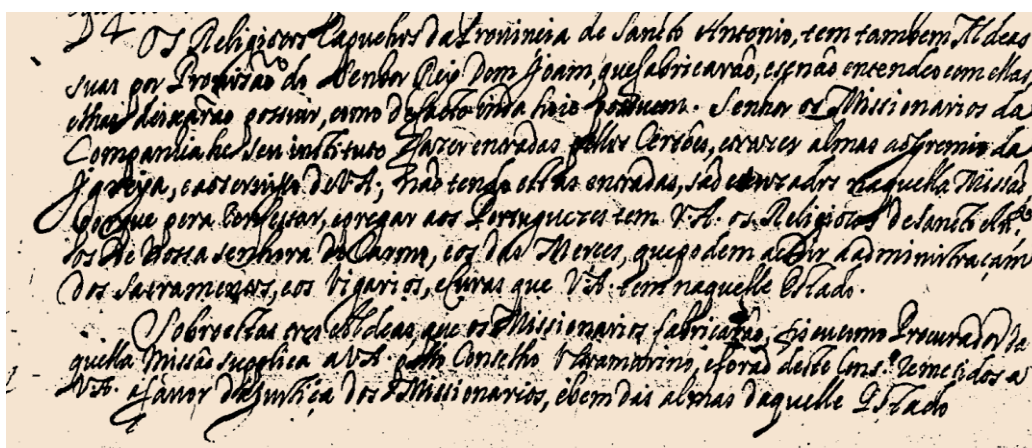 Os Religiosos Capuchos da Provincia de Sancto Antonio, tem tambem Aldeas
suas por Provisão do Senhor Rey Dom Joam, que fabricarão, e se não entendeo com ellas
e lhas deixarão possuir, como de facto inda hoie possuem. Senhor os Missionarios da
Companhia he seu instituto fazer entradas pellos Certões, e trazer almas ao gremio da
Igreja, e ao serviço de V.A; não tendo ellas entradas, são escuzados naquella Missão
porque pera confessar, e pregar aos Portuguezes tem V.A. os Religiosos de Sancto Ant.º
os de Nossa senhora do Carmo, e os das Merces, que podem acodir a administraçam
dos Sacramentos, e os Vigarios, e Curas que V.A. tem naquelle Estado.
Sobre estas tres Aldeas, que os Missionarios fabricarão, fis eu como Procurador da
quella Missão supplica a V.A. pello Conselho Ultramarino, e forão deste Cons.º remetidos a
V.A. a favor da justiça dos Missionarios, e bem das almas daquelle Estado